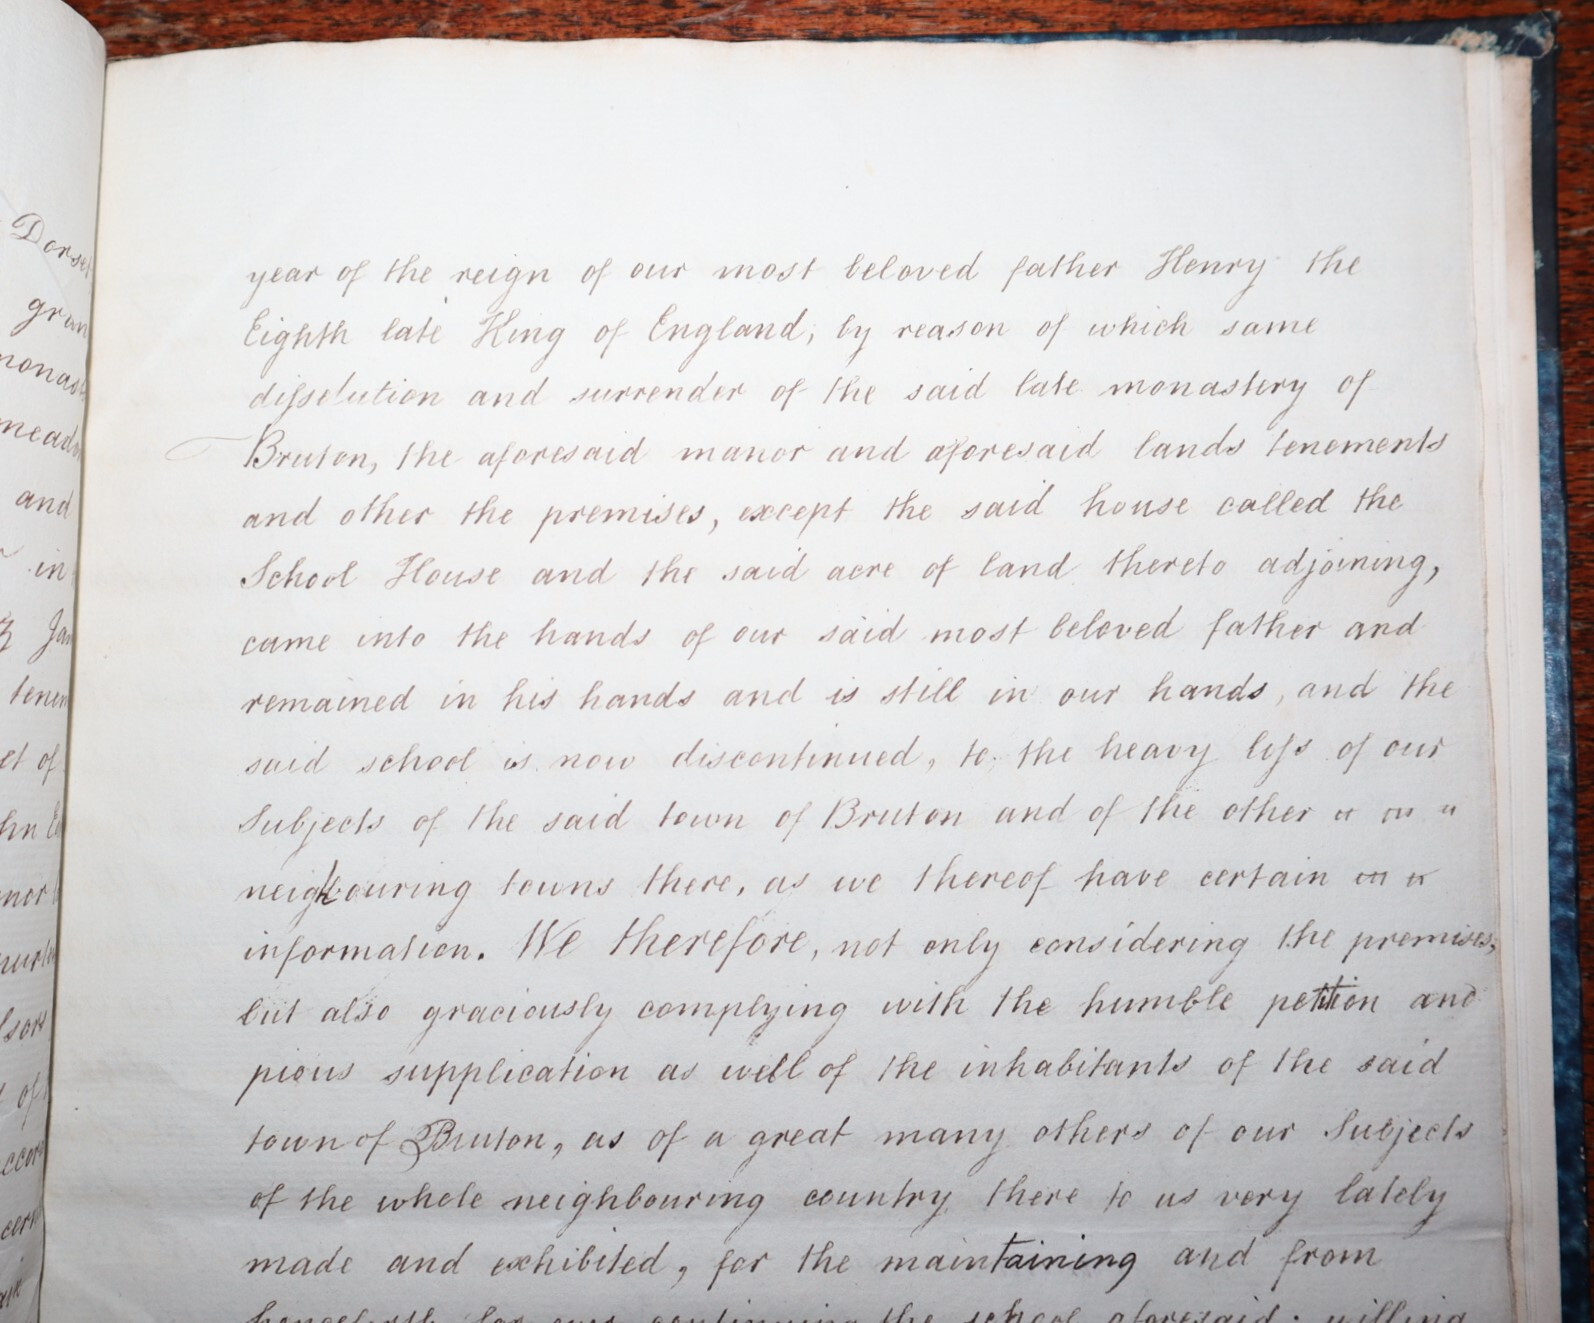 Dorset
and
in
of
year of the reign of our most beloved father Henry the
Eighth late King of England, by reason of which same
dissolution and surrender of the said late monastery of
Bruton, the aforesaid manor and aforesaid lands tenements
and other the premises, except the said house called the
School House and the said acre of land thereto adjoining,
came into the hands of our said most beloved father and
remained in his hands and is still in our hands, and the
said school is now discontinued, to the heavy loss of our
Subjects of the said town of Bruton and of the other
neighbouring towns there, as we thereof have certain
information. We therefore, not only considering the premises,
but also graciously complying with the humble petition and
pious supplication as well of the inhabitants of the said
town of Bruton, as of a great many others of our Subjects
of the whole neighbouring country there to us very lately
made and exhibited, for the maintaining and from
henceforth for ever continuing the school aforesaid; willing